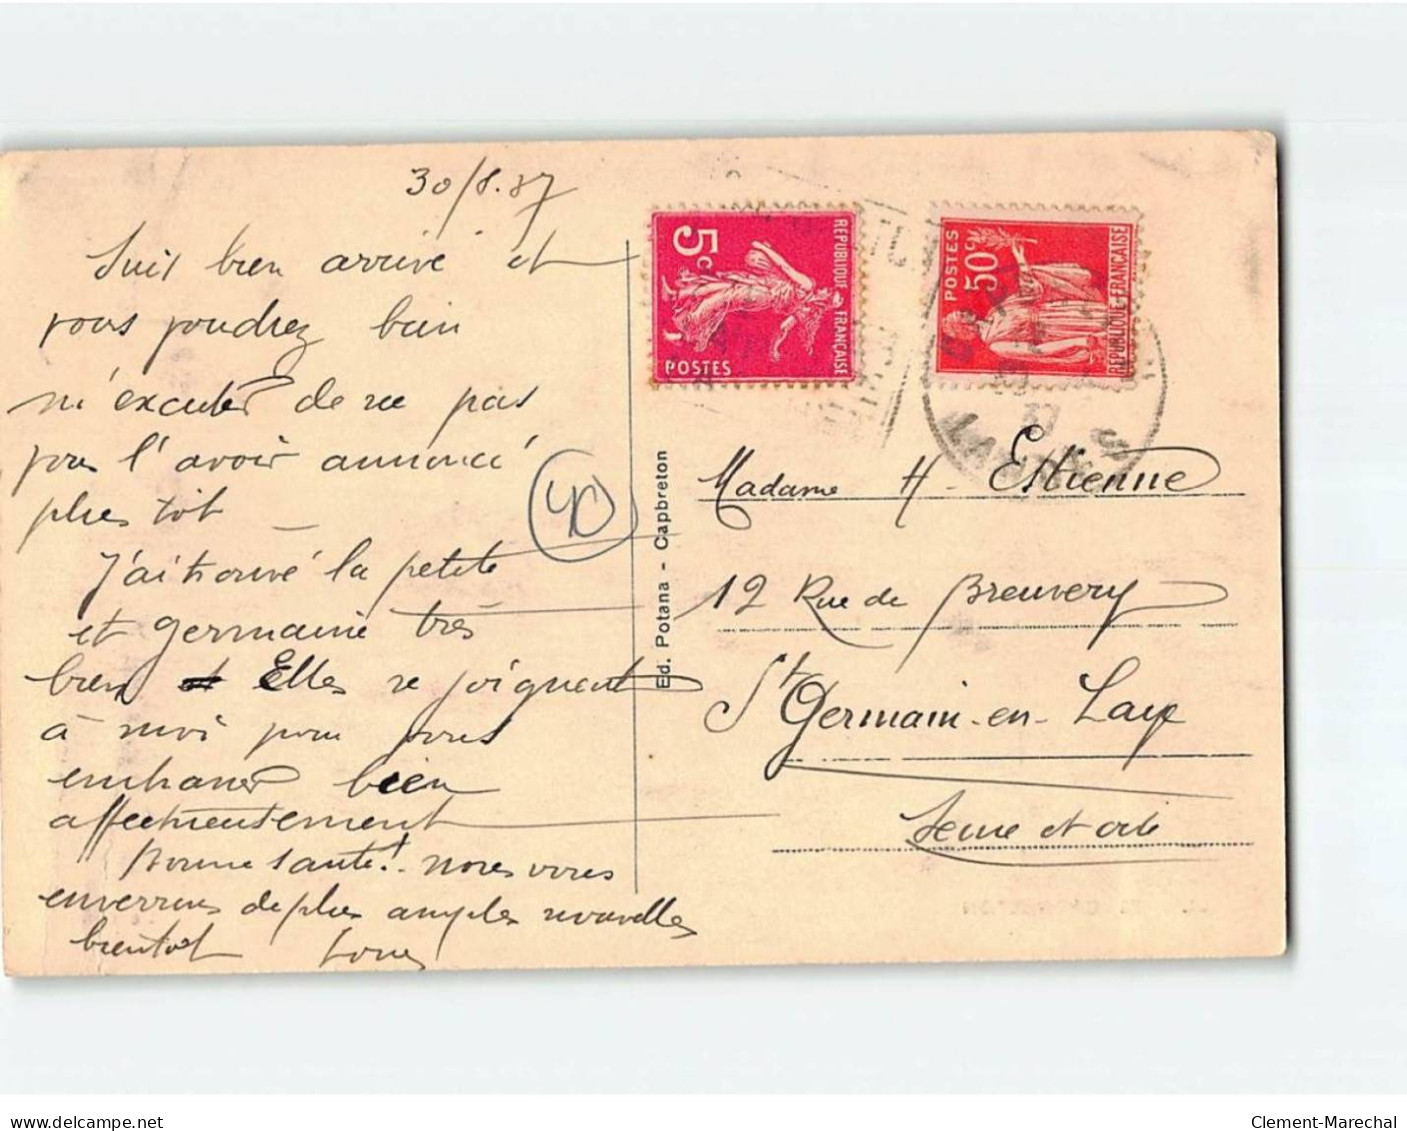 30/8.37
Suis bien arrivé et
vous voudrez bien
m'excuser de ne pas
vous l'avoir annoncé
plus tôt _
J'ai trouvé la petite
et Germaine très
bien et Elles se joignent
à moi pour vous
embrasser bien
affectueusement
Bonne santé! Nous vous
enverrons de plus amples nouvelles
bientôt
40
Ed. Potana - Capbreton
5c
REPUBLIQUE FRANÇAISE
POSTES
POSTES
50c
REPUBLIQUE FRANÇAISE
37
LANDES
Madame H. Estienne
12 Rue de Breuvery
St Germain-en-Laye
Seine et Oise
delcampe.net
Clement-Marechal